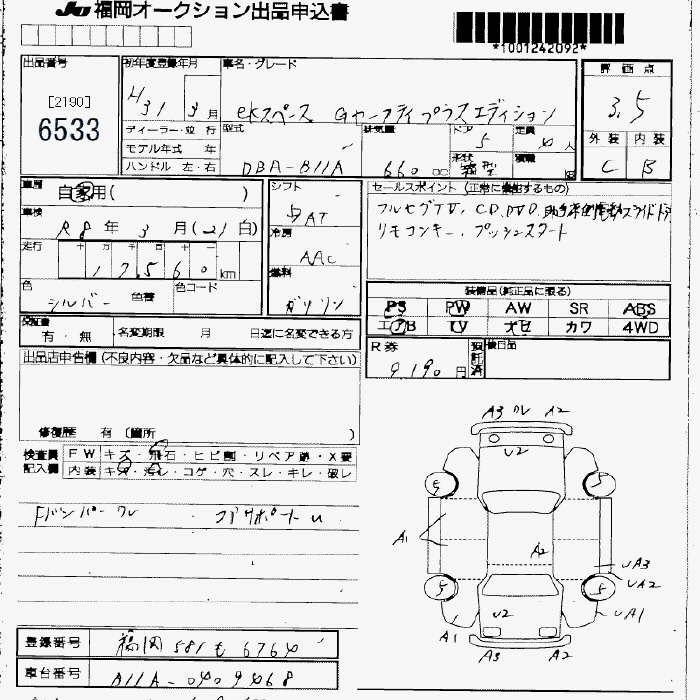 JU 福岡オークション出品申込書
*1001242092*
出品番号
[2190]
6533
初年度登録年月
H31 3月
車名・グレード
eKスペース Gセーフティプラスエディション
評価点
3.5
外装 内装
C B
ディーラー・並行
モデル年式 年
ハンドル 左・右
型式
DBA-B11A
排気量
660 cc
ドア
5
形状
定員
人
積載
車歴
自家用( )
車検
R8年 3月(21日)
走行
十 万 千 百 十 一
17,560 km
色
シルバー 色替
色コード
シフト
AT
冷房
AAC
燃料
ガソリン
セールスポイント(正常に機能するもの)
フルセグTV, CD, DVD, 助手席側電動スライドドア
リモコンキー, プッシュスタート
装備品(純正品に限る)
PS PW AW SR ABS
エアB TV ナビ カワ 4WD
保証書
有・無
名変期限 月 日迄に名変できる方
R券
9,190円
預託済
後日品
出品店申告欄(不良内容・欠品など具体的に記入して下さい)
修復歴 有〔箇所 )
検査員記入欄
FW キズ・飛石・ヒビ割・リペア跡・X要
内装 キズ・汚れ・コゲ・穴・スレ・キレ・破レ
Fバンパーワレ コアサポートU
A3 ワレ A2
U2
S S
A1
A2
UA3
UA2
S S
UA1
U2
A1
A3 A2
登録番号 福岡 581 も 6764
車台番号 A11A-0409468